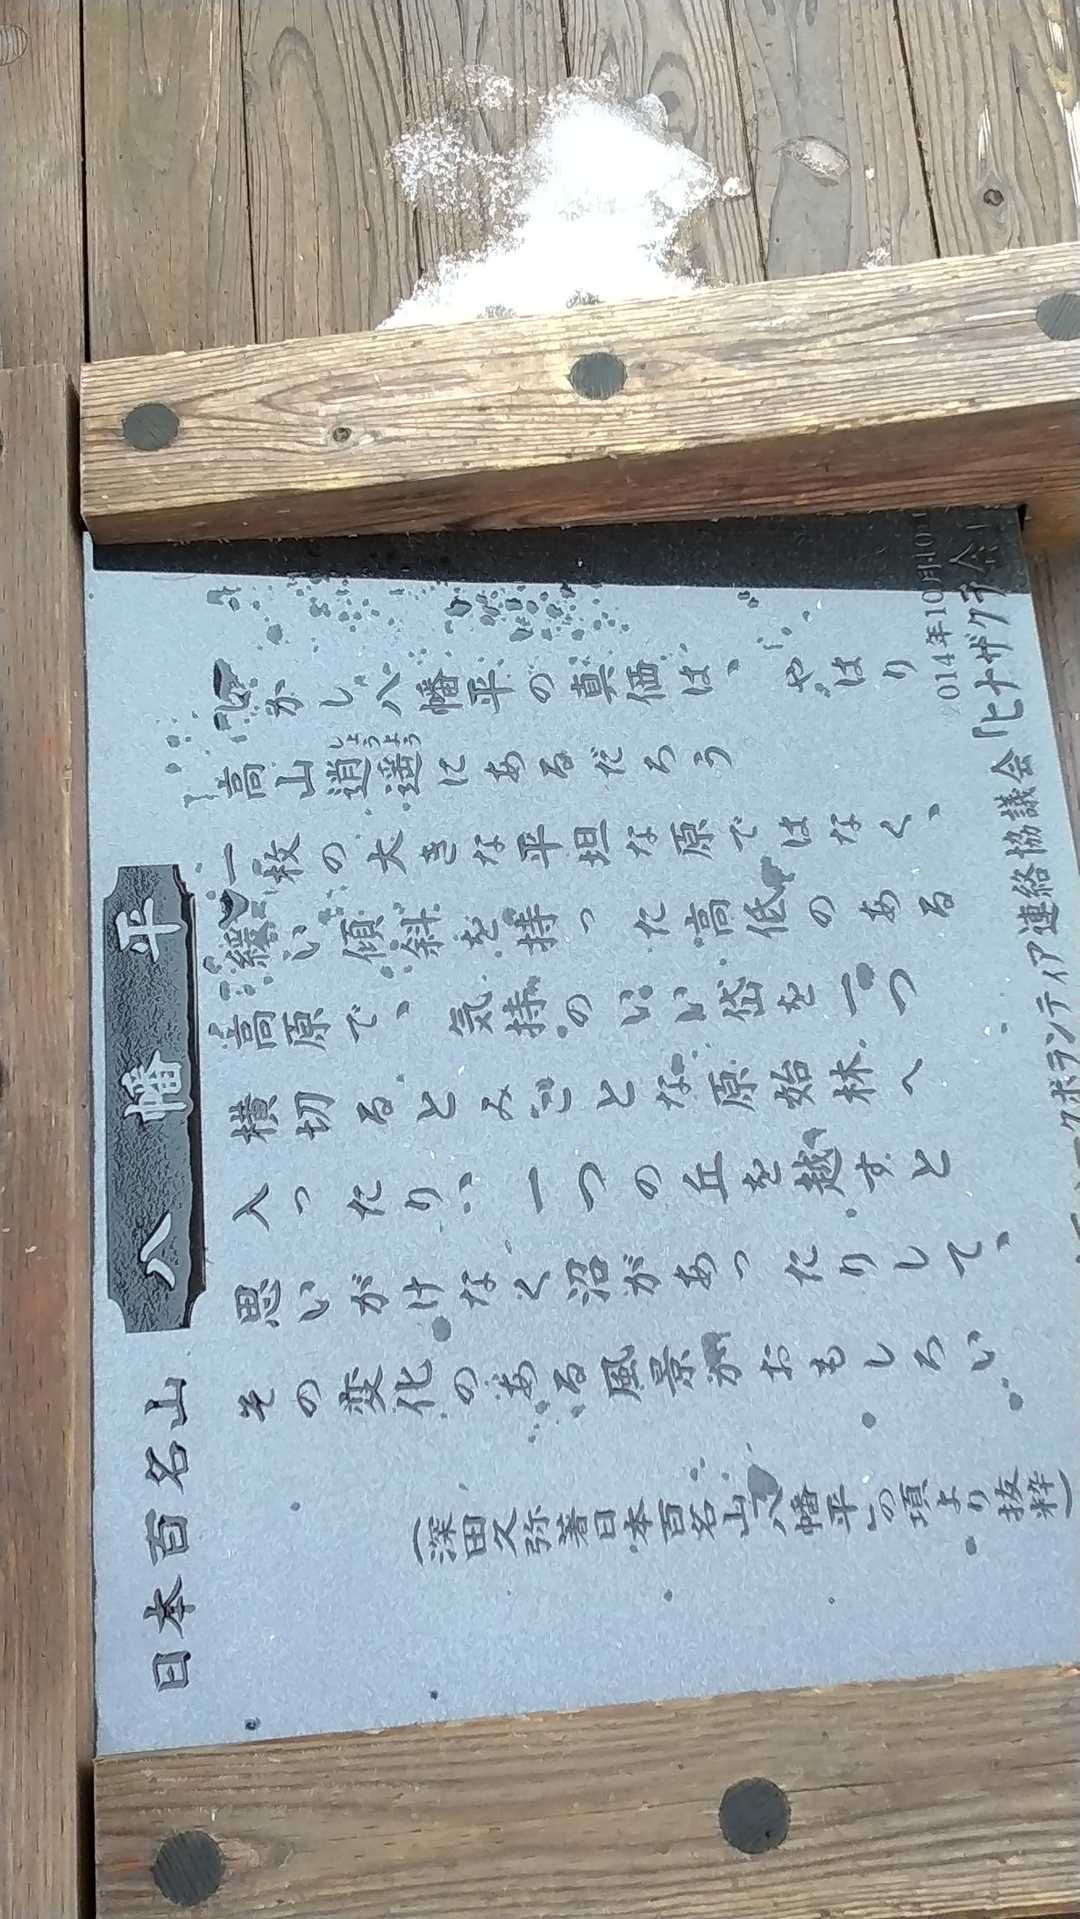 日本百名山 八幡平
しかし八幡平の真価は、やはり
高山逍遥にあるだろう
しょうよう
一枚の大きな平坦な原ではなく、
緩い傾斜を持った高低のある
高原で、気持のいい岱を一つ
横切るとみごとな原始林へ
入ったり、一つの丘を越すと
思いがけなく沼があったりして、
その変化のある風景がおもしろい
(深田久弥著日本百名山「八幡平」の項より抜粋)
2014年10月10
クボランティア連絡協議会「ヒナザクラ会」